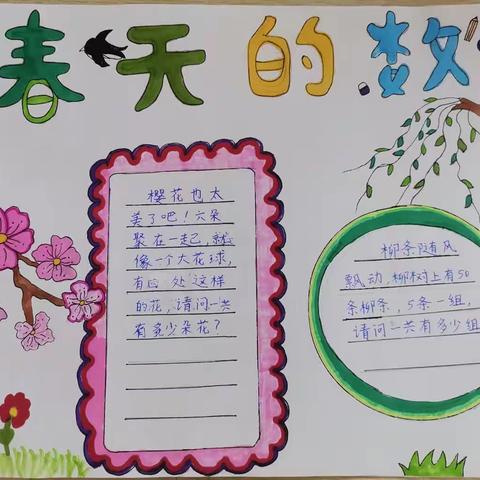 春天的数
樱花也太
美了吧！六朵
聚在一起，就
像一个大花球，
有处这样
的花，请问一共
有多少朵花？
柳条随风
飘动，柳树上有50
条柳条，5条一组，
请问一共有多少组